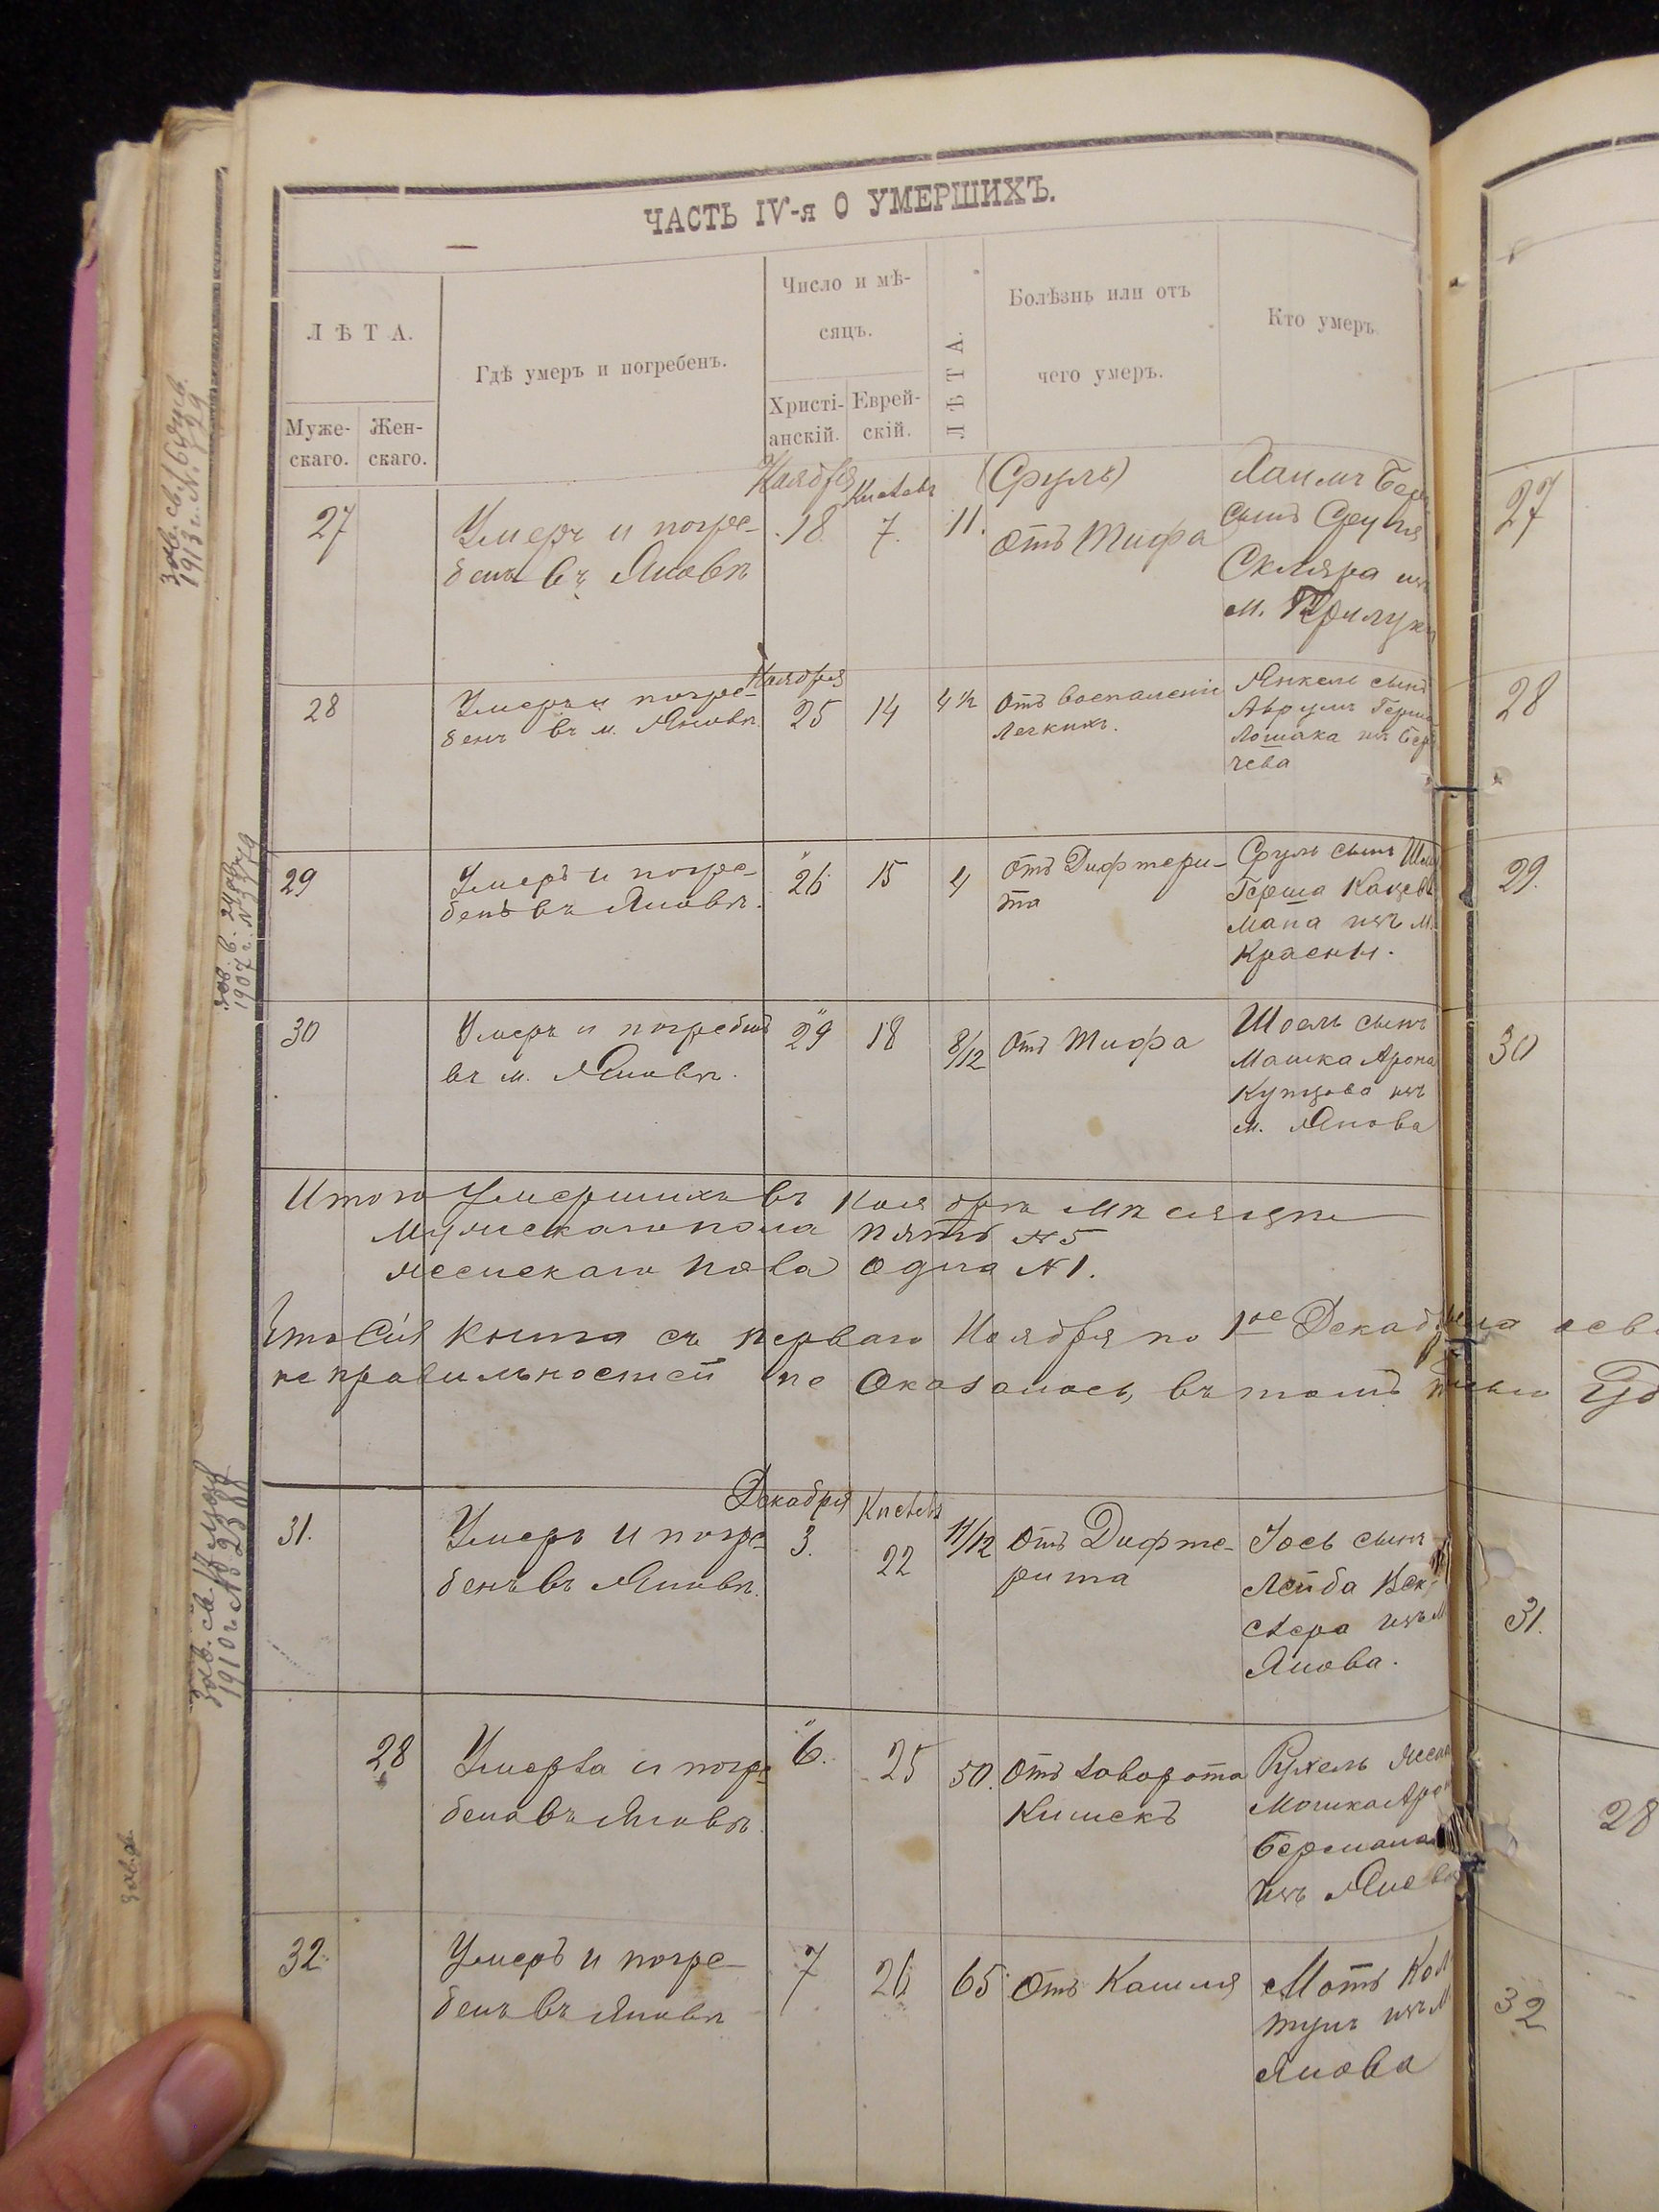 ЧАСТЬ IV-я О УМЕРШИХЪ.
ЛѢТА.
Муже-
скаго.
Жен-
скаго.
Гдѣ умеръ и погребенъ.
Число и мѣ-
сяцъ.
Христі-
анскій.
Еврей-
скій.
ЛѢТА.
Болѣзнь или отъ
чего умеръ.
Кто умеръ.
Ноября
Кислевъ
(Сруль)
27
Умеръ и погре-
бенъ въ Яновѣ
18
7.
11.
отъ Тифа
Хаимъ
сынъ Сруля
Скляра изъ
м. Прилуки
27
Ноября
28
Умеръ и погре-
бенъ въ м. Яновѣ.
25
14
4 ½
отъ воспаленія
легкихъ.
Янкель сынъ
Аврумъ Герша
Лошака изъ Бер
чева
28
29
Умеръ и погре-
бенъ въ Яновѣ.
" 26
15
4
отъ Дифтери-
та
Сруль сынъ
Герша Кацев
мана изъ м.
Красны.
29.
30
Умеръ и погребенъ
въ м. Яновѣ.
" 29
18
8/12
отъ Тифа
Шоель сынъ
Мошка Арона
Купцова изъ
м. Янова
30
Итого Умершихъ въ Ноябрѣ мѣсяцѣ
Мужескаго пола пять № 5
женскаго пола одна № 1.
Что Сія книга съ перваго Ноября по 1ое Декабря
неправильностей не оказалось, въ томъ
Декабря
Кислевъ
31.
Умеръ и погре-
бенъ въ Яновѣ.
3.
22
11/12
отъ Дифте-
рита
Іось сынъ
Лейба Век-
слера изъ м
Янова.
31.
28
Умерла и погре-
бена въ Яновѣ.
" 6.
25
50.
отъ заворота
Кишекъ
Рухель жена
Мошка Арон
Бермана
изъ Янова
28
32
Умеръ и погре-
бенъ въ Яновѣ
7
26
65
отъ Кашля
Мотъ Кол
тунъ изъ м
Янова
32
1913 г. №
1907 г. № 3379
1910 г. № 2388